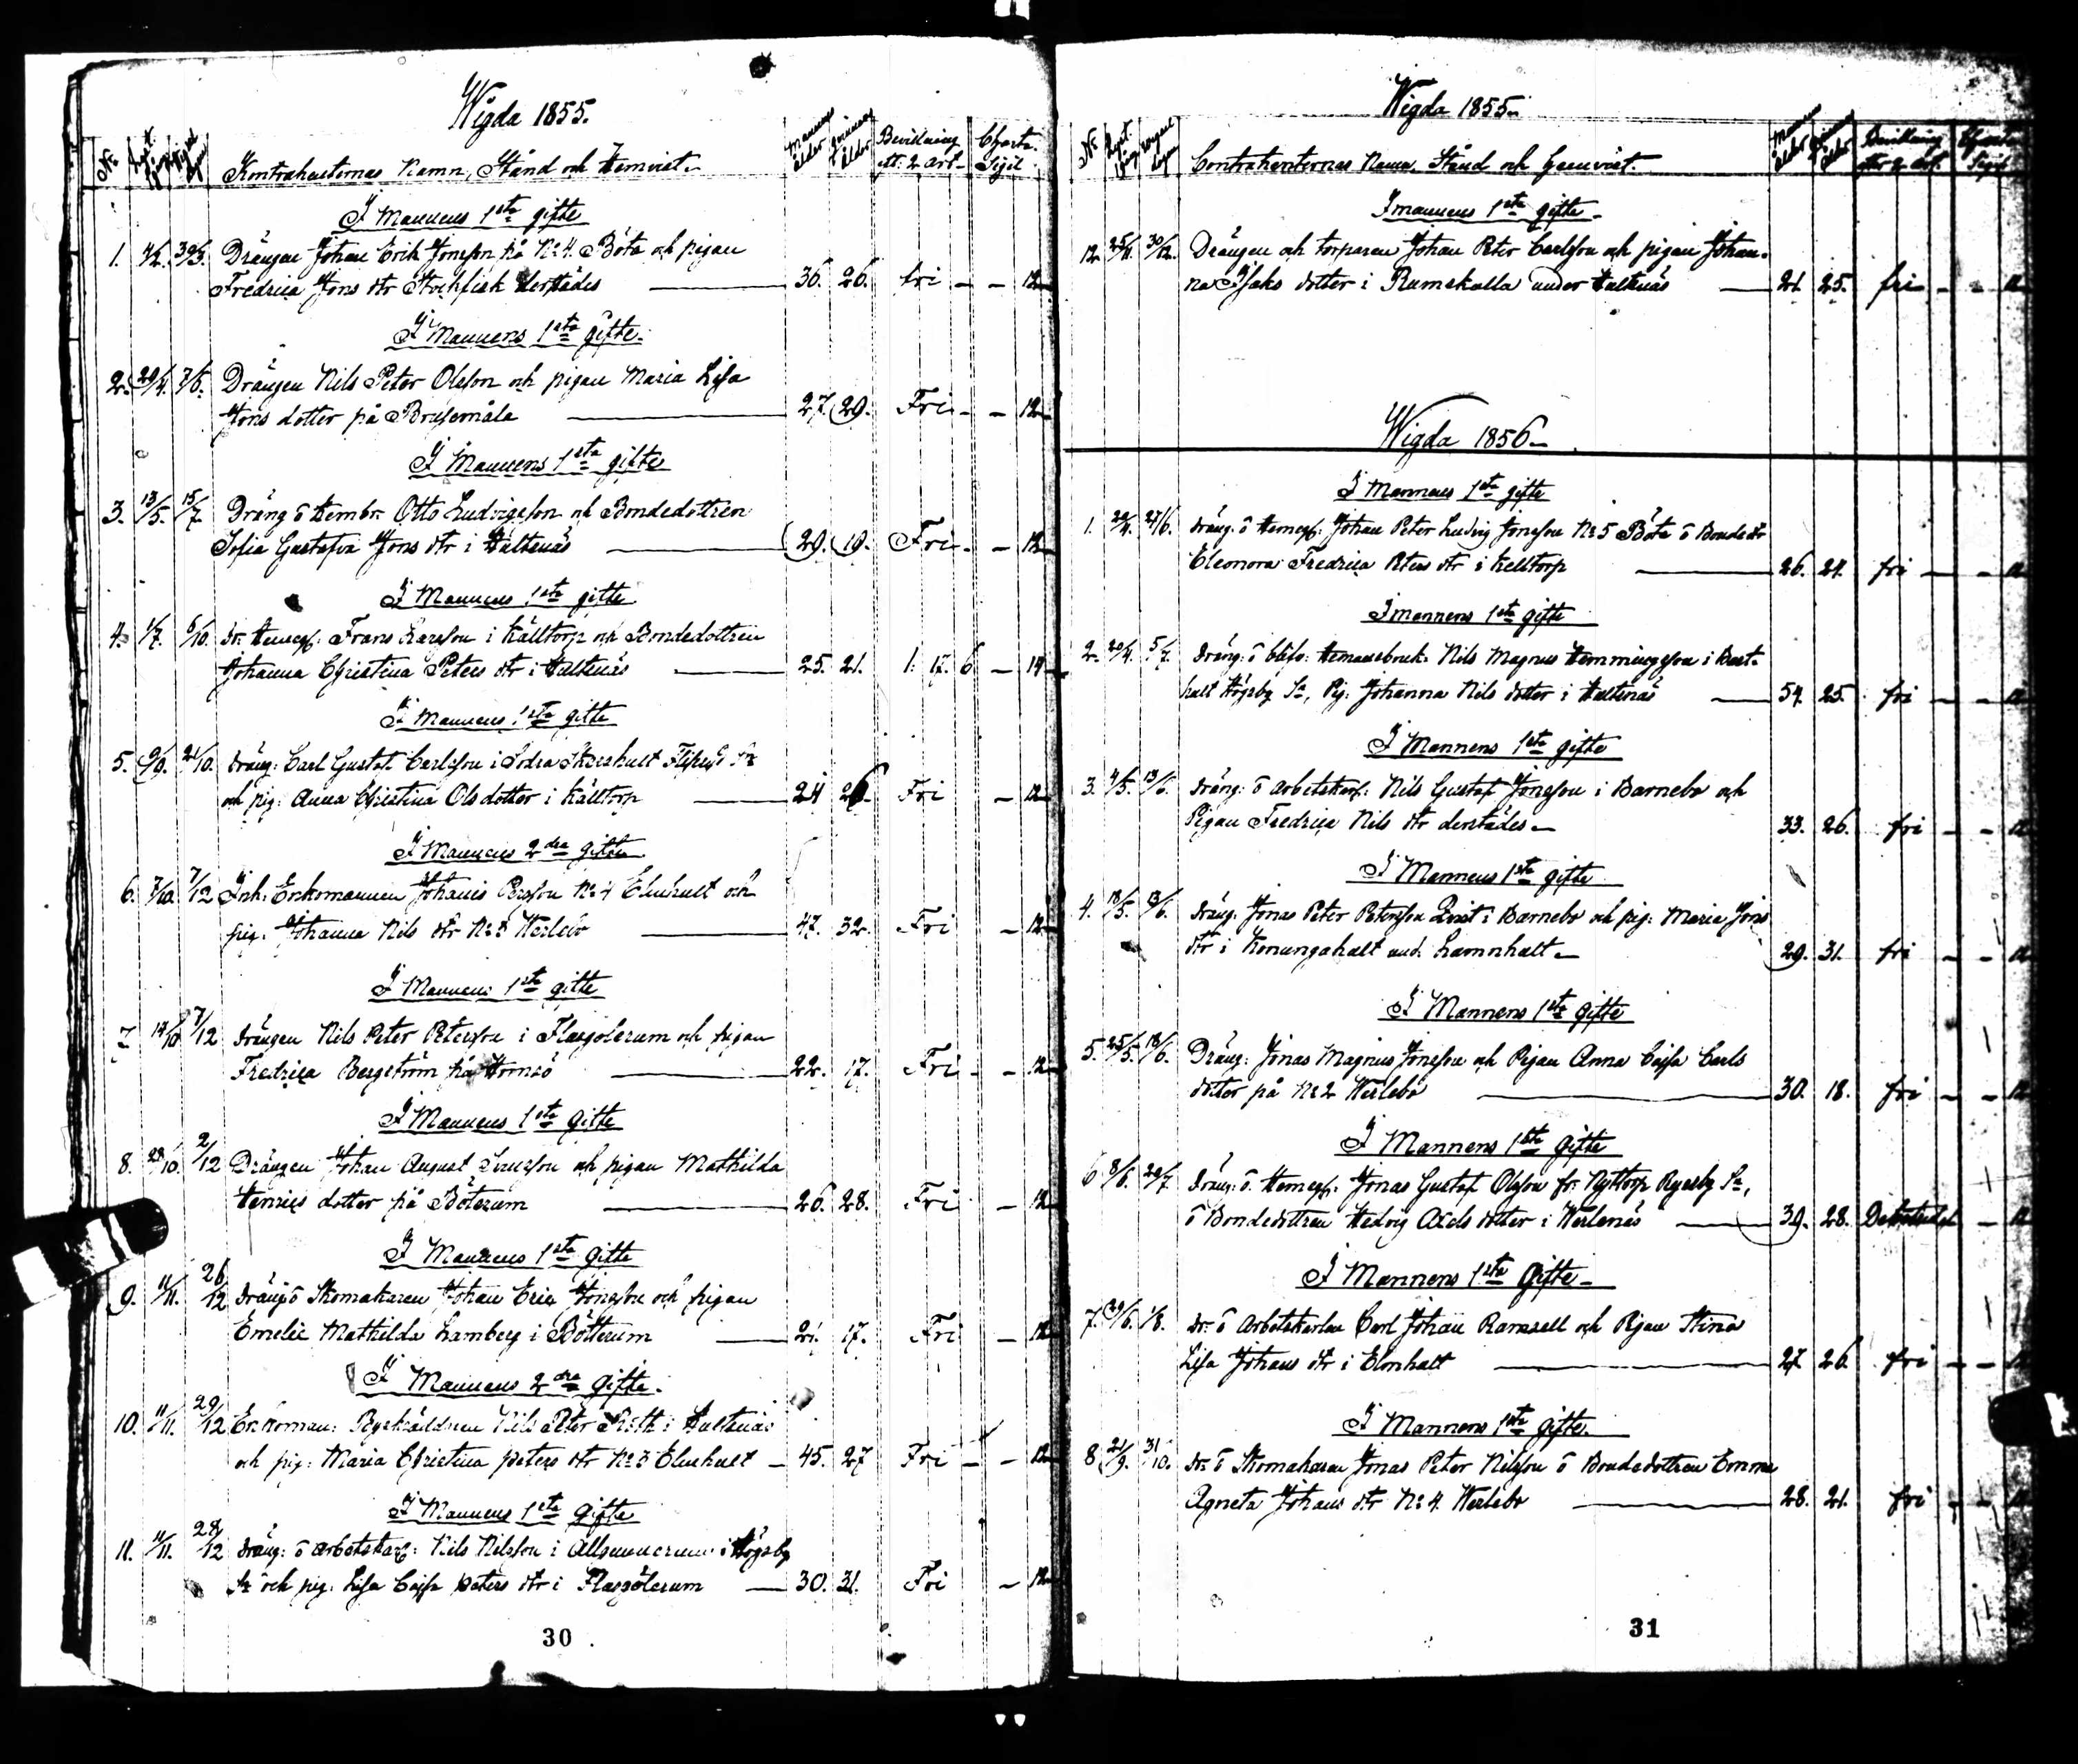 Wigda 1855.
No Kontrahenternas Namn, Stånd och Hemvist. Mannens ålder Qvinnans ålder Bevillning eft. 2 art. Charta Sigil.
I Mannens 1sta gifte
1. Drängen Johan Erik Jonsson på No 4 Böta och pigan
Fredrica Jons dtr Stockfisk derstädes 36. 26. fri - - 12
I Mannens 1sta gifte.
2. 29/4. 7/6. Drängen Nils Peter Olsson och pigan Maria Lisa
Jons dotter på Brusemåla 27. 29. Fri - - 12
I Mannens 1sta gifte
3. 13/5. 15/7. Dräng o Hembr. Otto Ludvigsson och Bondedottren
Sofia Gustafva Jons dtr i Hultenäs 29. 19. Fri - - 12
I Mannens 1sta gifte
4. 1/7. 6/10. Dr. Hemeg: Frans Larsson i Källtorp och Bondedottren
Johanna Christina Peters dtr i Hultenäs 25. 21. 1. 17. 6 - 14
I Mannens 1sta gifte
5. 9/9. 21/10. Dräng: Carl Gustaf Carlsson i Södra Skärshult Fliseryd Sn
och pig: Anna Christina Ols dotter i Källtorp 24 26 Fri - 12
I Mannens 2dra gifte
6. 7/10. 7/12 Inh. Enkomannen Johanis Persson No 4 Elmhult och
pig. Johanna Nils dtr No 3 Werlebo 47. 32. Fri - 12
I Mannens 1sta gifte
7 14/10 7/12 Drängen Nils Peter Peterson i Flasgölerum och pigan
Fredrica Bergström på Hornsö 22. 17. Fri - - 12
I Mannens 1sta Gifte
8. 28/10. 2/12 Drängen Johan August Jonsson och pigan Mathilda
Henrics dotter på Böterum 26. 28. Fri - 12
I Mannens 1sta Gifte
9. 11/11. 26/12 Dräng o Skomakaren Johan Eric Jonsson och pigan
Emelie Mathilda Lamberg i Bötterum 21. 17. Fri - 12
I Mannens 2dra Gifte.
10. 11/11. 29/12 Enkoman: Ryskäldren Nils Peter Roth i Hultenäs
och pig: Maria Christina Peters dtr No 3 Elmhult - 45. 27 Fri - - 12
I Mannens 1sta Gifte
11. 11/11. 28/12 Dräng: o arbetskarl: Nils Nilsson i Allsmunerum i Högsby
Sn och pig. Lisa Cajsa Peters dtr i Flasgölerum 30. 31. Fri - 12
30
Wigda 1855.
No Contrahenternas Namn, Stånd och Hemvist. Mannens ålder Qvinnans ålder Bevillning eftr 2 Art. Charta Sigil
I mannens 1sta gifte
12. 25/11. 30/12. Drängen och torparen Johan Peter Carlsson och pigan Johan-
na Isaks dotter i Rumskulla under Hultenäs 21. 25. fri - -
Wigda 1856.
I Mannens 1sta gifte
1. 27/6. Dräng: o Hemeg: Johan Peter Ludvig Jonsson No 5 Böta o Bondedtr
Eleonora Fredrica Peters dtr i Kelltorp 26. 21. fri - -
I mannens 1sta gifte
2. 20/4. 5/7. Dräng: o blifv. Hemansbruk. Nils Magnus Hemmingsson i Bast-
hult Högsby Sn, Pig. Johanna Nils dotter i Hultenäs 54 25. fri - -
I Mannens 1sta gifte
3. 4/5. 13/6. Dräng: o arbetskarl: Nils Gustaf Jonsson i Barnebo och
Pigan Fredrica Nils dtr derstädes 33. 26. fri - -
I Mannens 1sta gifte
4. 18/5. Dräng. Jonas Peter Petersson Qvist i Barnebo och pig: Maria Jons
dtr i Konungahult und. Lamnhult 29. 31. fri - -
I Mannens 1sta Gifte
5. 25/5. 18/6. Dräng: Jonas Magnus Jonsson och Pigan Anna Cajsa Carls
dotter på No 2 Werlebo 30. 18. fri - -
I Mannens 1sta Gifte
6 8/6. 20/7 Dräng: o. Hemeg: Jonas Gustaf Olsson fr. Nyttorp Ryssby Sn,
o Bondedottren Hedvig Axels dotter i Werlenäs 39. 28. -
I Mannens 1sta Gifte
7. 29/6. 1/8. Dr. o Arbetskarlen Carl Johan Ramsell och Pigan Stina
Lisa Johans dtr i Elmhult 27 26. fri - -
I Mannens 1sta Gifte.
8 21/9. 31/10. Dr. o Skomakaren Jonas Peter Nilsson o Bondedottren Emma
Agneta Johans dtr No 4. Werlebo 28. 21. fri - -
31